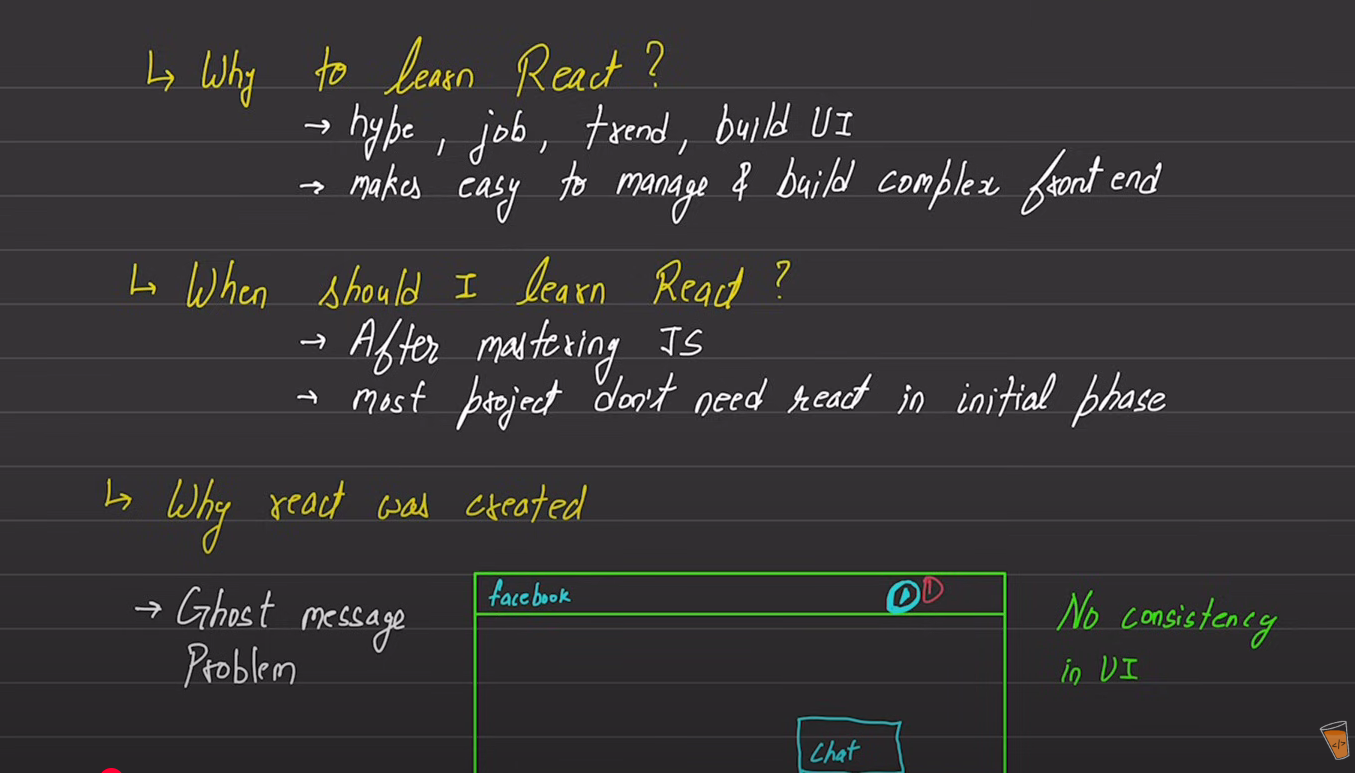 ↳ Why to learn React?
→ hype, job, trend, build UI
→ makes easy to manage & build complex front end
↳ When should I learn React?
→ After mastering JS
→ most project don't need react in initial phase
↳ Why react was created
→ Ghost message
Problem
facebook
1
No consistency
in UI
Chat
</>